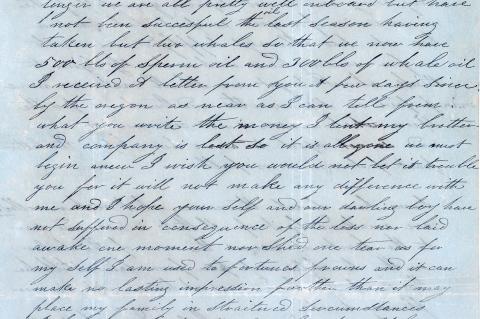 longer we are all pretty well onboard but have
not been succesful the last season having
taken but two whales so that we now have
500 bls of sperm oil and 300 bls of whale oil
I received a letter from you a few days since
by the oregon as near as I can tell from
what you write the money I lent my brother
and company is lost so it is all gone we must
begin anew I wish you would not let it trouble
you for it will not make any difference with
me and I hope your self and our darling boy have
not suffered in consequence of the loss nor laid
awake one moment nor shed one tear as for
my self I am used to fortunes frowns and it can
make no lasting impression farther than it may
place my family in straitned circumstances